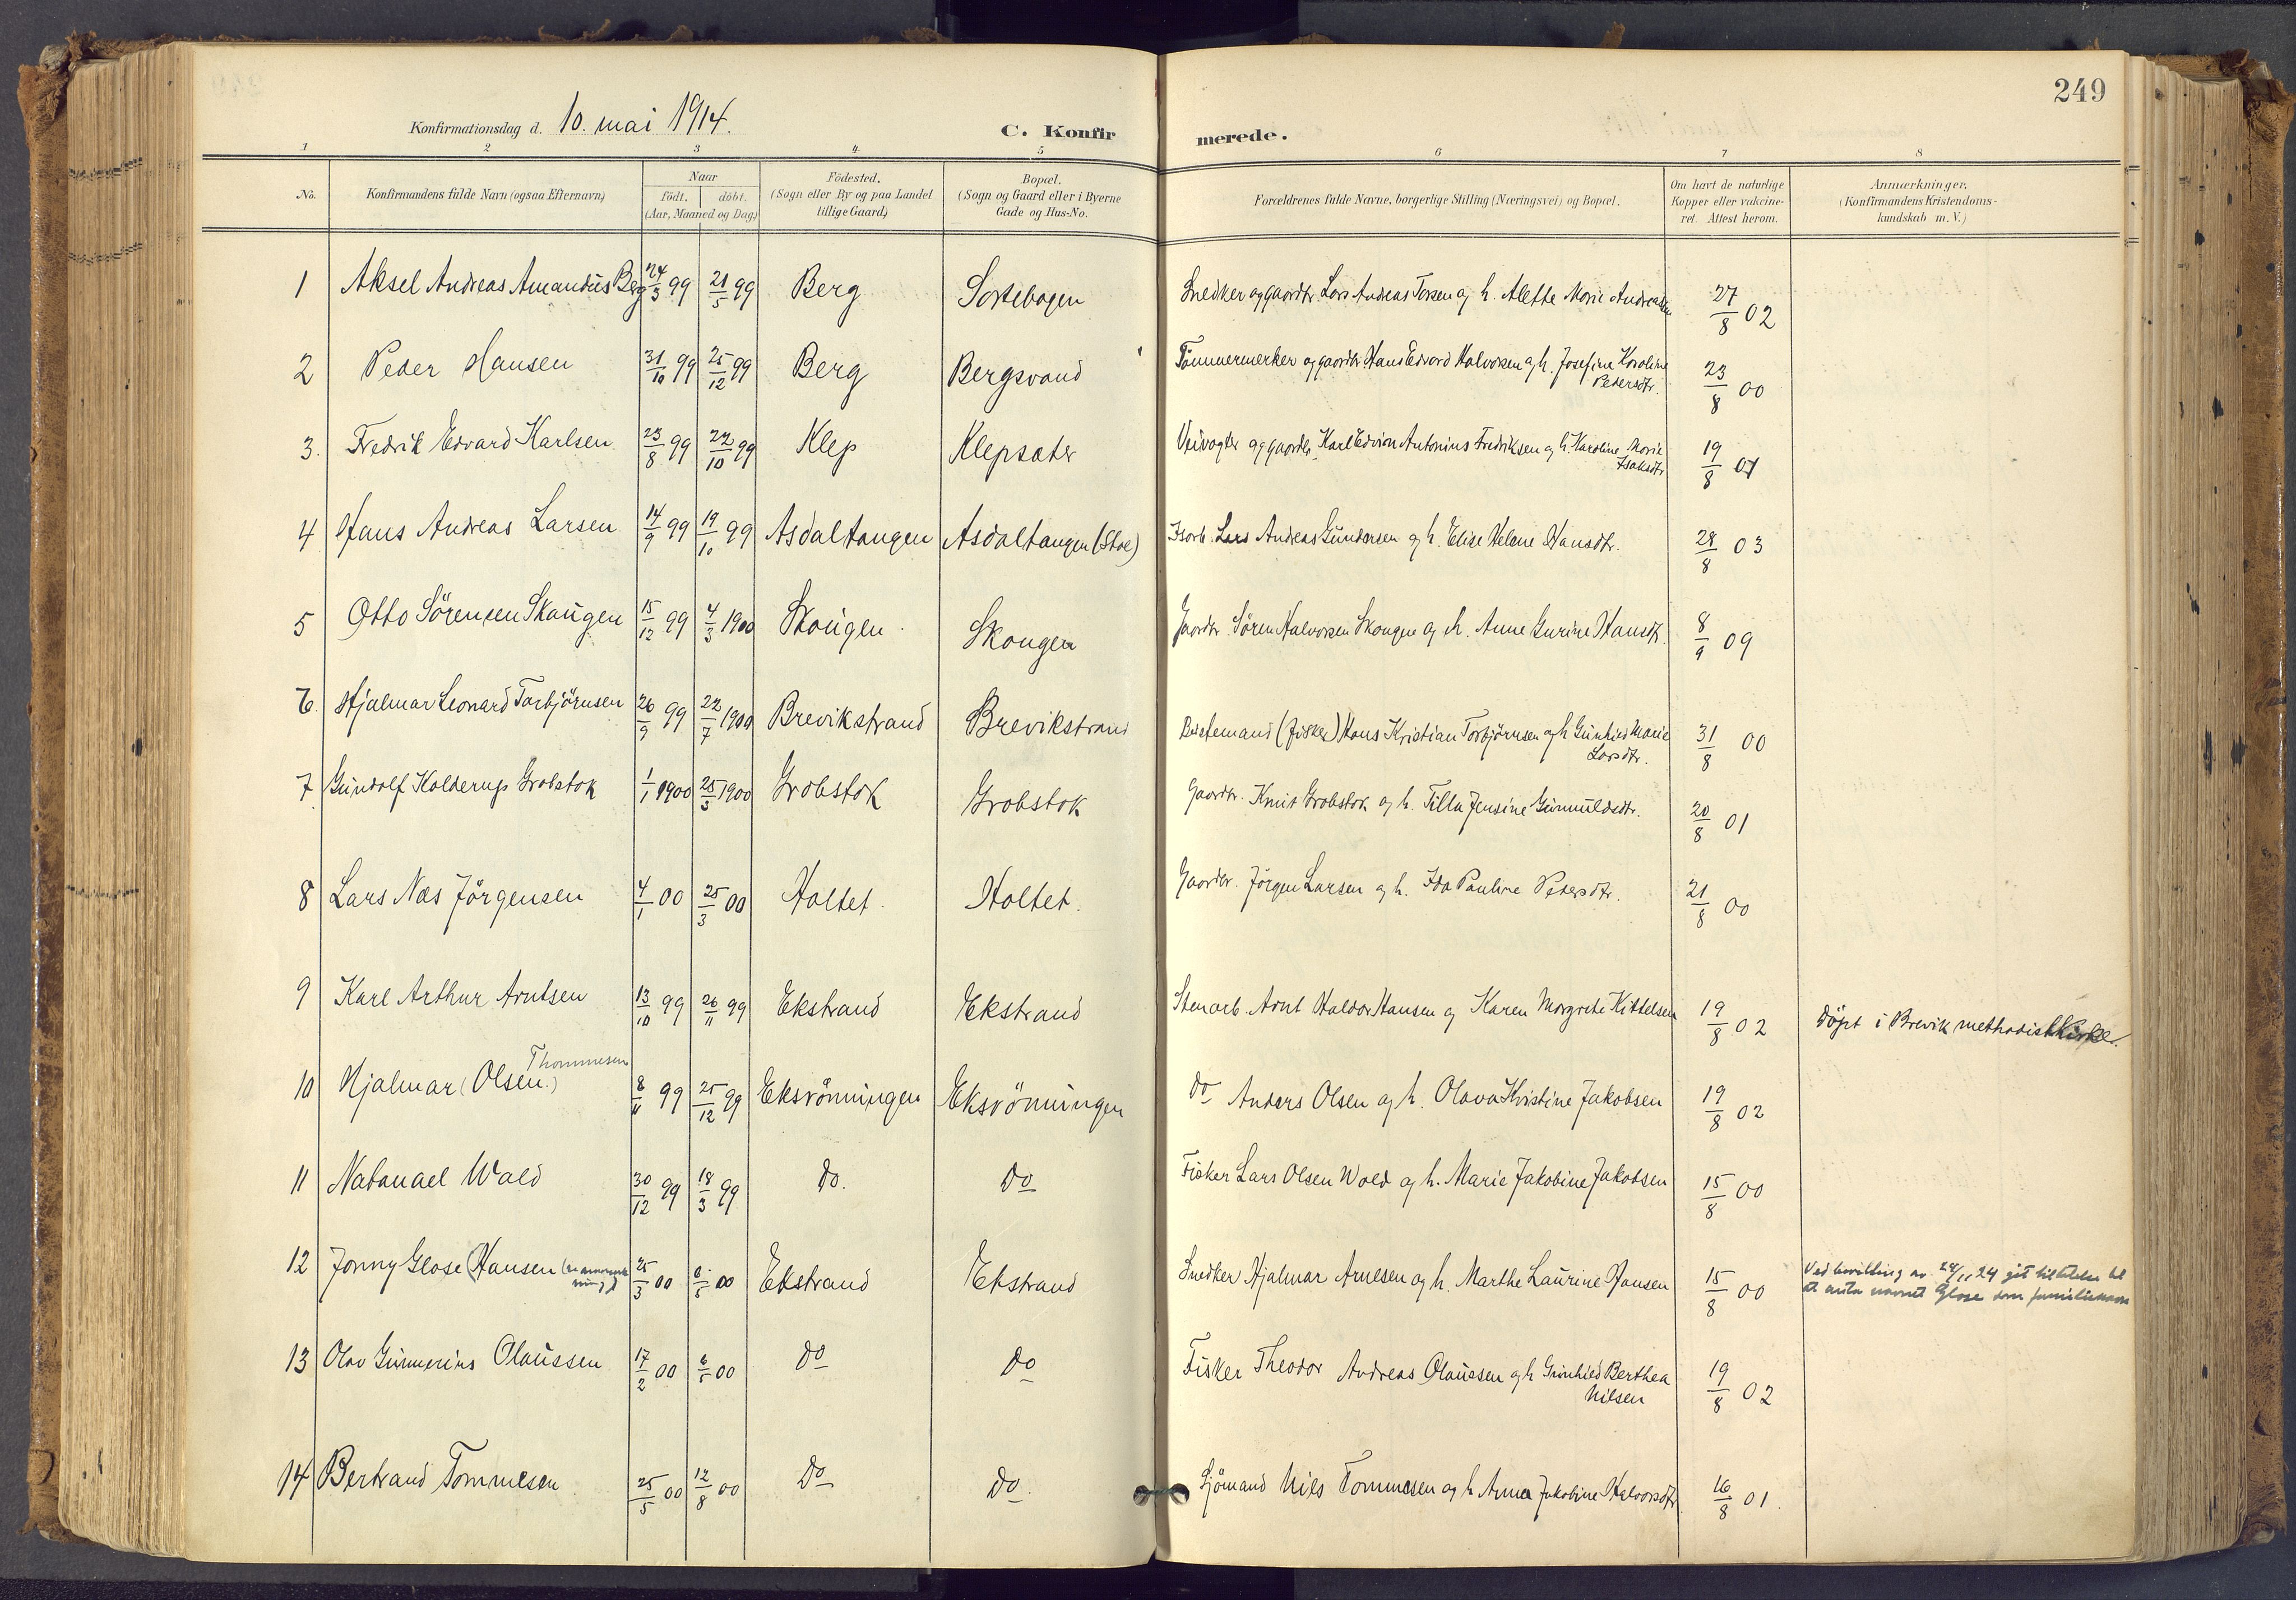 249
Konfirmationsdag d. 10. mai 1914.
C. Konfirmerede.
1 2 3 4 5 6 7 8
No. Konfirmandens fulde Navn (ogsaa Efternavn) Naar födt. döbt. (Aar, Maaned og Dag.) Födested. (Sogn eller By og paa Landet tillige Gaard.) Bopæl. (Sogn og Gaard eller i Byerne Gade og Hus-No. Forældrenes fulde Navne, borgerlige Stilling (Næringsvei) og Bopæl. Om havt de naturlige Kopper eller vakcineret. Attest herom. Anmærkninger. (Konfirmandens Kristendomskundskab m. V.)
1 Aksel Andreas Amandus Berg 24/3 99 21/5 99 Berg Sortebogen Snedker og gaardbr. Lars Andreas Torsen og h. Alette Marie Andreasen 27/8 02
2 Peder Hansen 31/10 99 25/12 99 Berg Bergsvand Tømmermerker og gaardbr. Hans Edvard Halvorsen og h. Josefine Karoline Pedersdtr. 23/8 00
3. Fredrik Edvard Karlsen 23/8 99 22/10 99 Klep Klepsæter Veivogter og gaardbr. Karl Edvin Antonius Fredriksen og h. Karoline Marie Isaksdtr 19/8 01
4 Hans Andreas Larsen 14/9 99 19/10 99 Asdaltangen Asdaltangen (Stoe) Lars Andreas Gundersen og h. Elise Helene Hansdtr. 28/8 03
5 Otto Sörensen Skaugen 15/12 99 4/3 1900 Skaugen Skaugen Gaardbr. Sören Halvorsen Skaugen og h. Anne Gurine Hansdtr. 8/9 09
6. Hjalmar Leonard Torbjörnsen 26/9 99 22/7 1900 Brevikstrand Brevikstrand (fisker) Hans Kristian Torbjörnsen og h Gunhild Marie Larsdtr. 31/8 00
7 Gundolf Holderup Grobstok 1/1 1900 25/3 1900 Grobstok Grobstok Gaardbr. Knut Grobstok og h. Tilla Jensine Gunnuldsdtr. 20/8 01
8 Lars Næs Jörgensen 4/1 00 25/3 00 Holtet. Holtet. Gaardbr. Jörgen Larsen og h. Ida Pauline Pedersdtr. 21/8 00
9 Karl Arthur Arntsen 13/10 99 26/11 99 Ekstrand Ekstrand Stenarb. Arnt Haldor Hansen og Karen Margrete Kittelsen 19/8 02 döpt i Brevik methodistkirke.
10 Hjalmar (Olsen.) Thommesen 8/11 99 25/12 99 Eksrönningen Eksrönningen do Anders Olsen og h. Olava Kristine Jakobsen 19/8 02
11 Natanael Wald 30/12 99 18/3 99 do. do Fisker Lars Olsen Wold og h. Marie Jakobine Jakobsen 15/8 00
12 Jonny Glose (Hansen 25/3 00 6/5 00 Ekstrand Ekstrand Snedker Hjalmar Arnesen og h. Marthe Laurine Hansen 15/8 00 Ved bevilling av 24/11 24 git tillatelse til at anta navnet Glose som familienavn
13 Olav Gunnerius Olaussen 17/2 00 6/5 00 do do Fisker Theodor Andreas Olaussen og h Gunhild Berthea Nilsen 19/8 02
14 Bertrand Tommesen 25/5 00 12/8 00 Do Do. Sjömand Nils Tommesen og h Anna Jakobine Halvorsdtr 16/8 01.